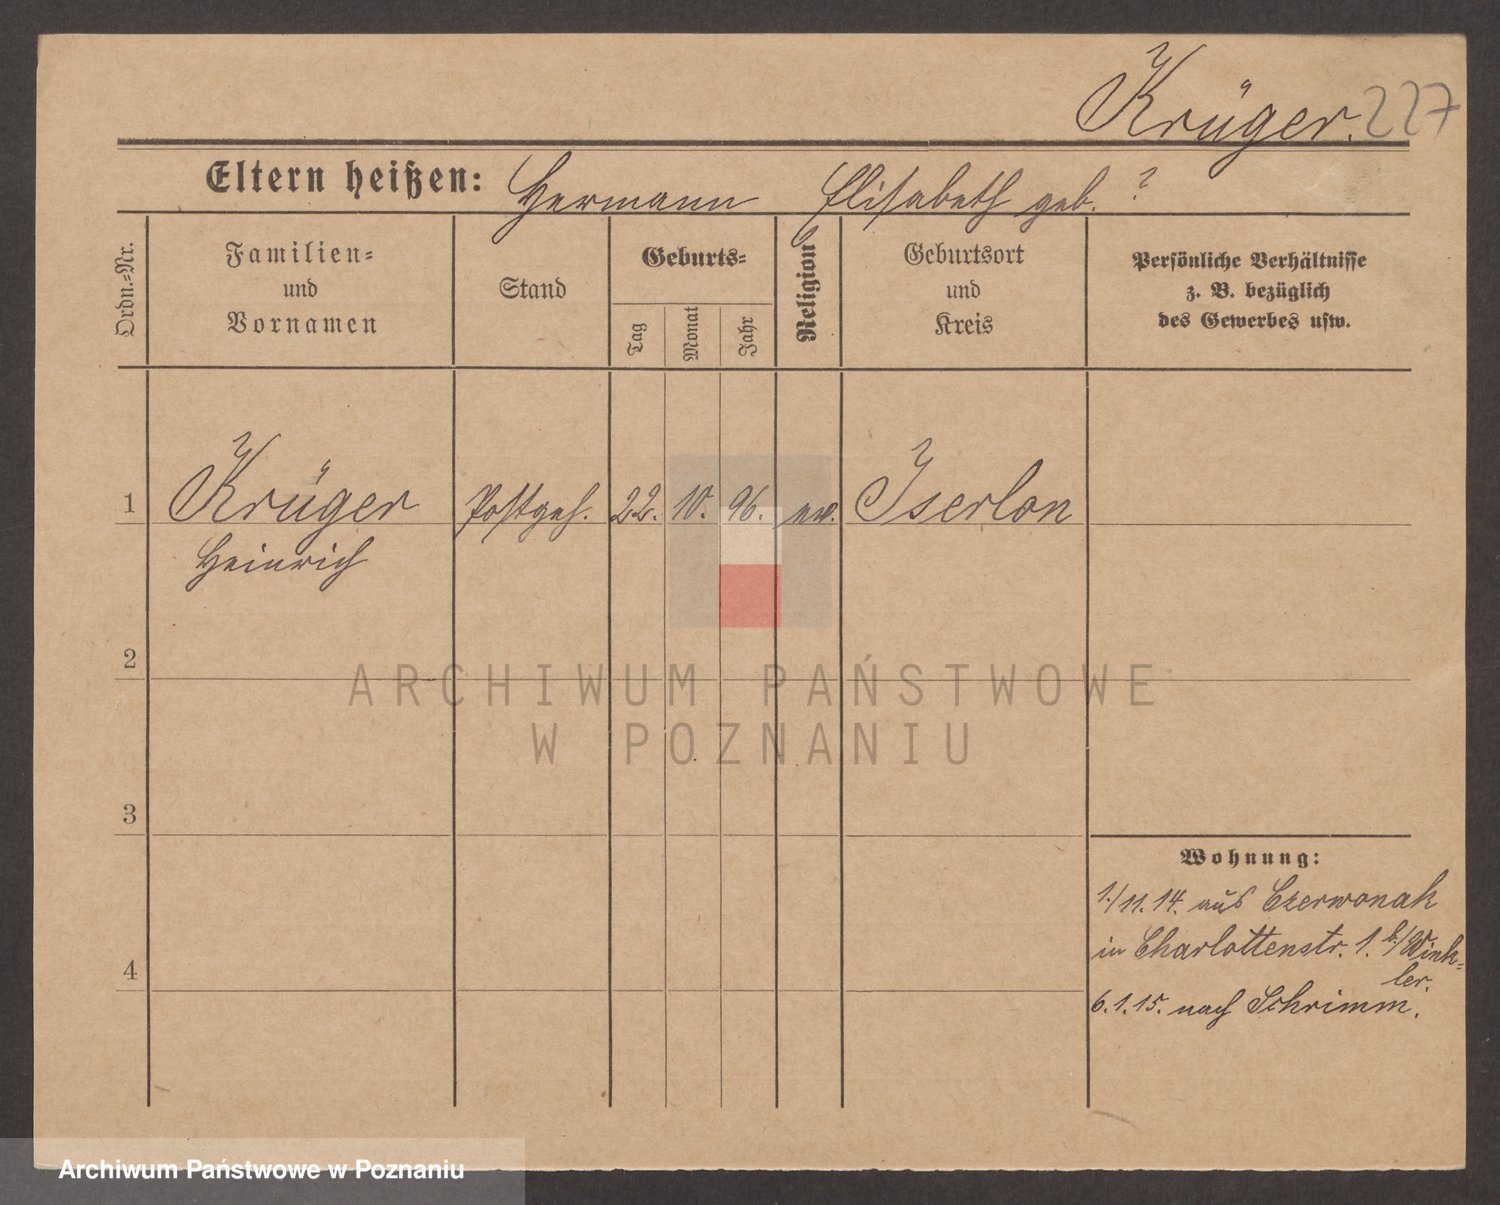 Krüger. 227
Eltern heißen: Hermann Elisabeth geb. ?
Ordn.-Nr.
Familien-
und
Vornamen
Stand
Geburts-
Tag
Monat
Jahr
Religion
Geburtsort
und
Kreis
Persönliche Verhältnisse
z. B. bezüglich
des Gewerbes usw.
1 Krüger Postgeh. 22. 10. 96. ev. Iserlon
Heinrich
2
3
4
Wohnung:
1./11.14. aus Czerwonak
in Charlottenstr. 1. b./Wink-
ler.
6.1.15. nach Schrimm.
ARCHIWUM PAŃSTWOWE
W POZNANIU
Archiwum Państwowe w Poznaniu